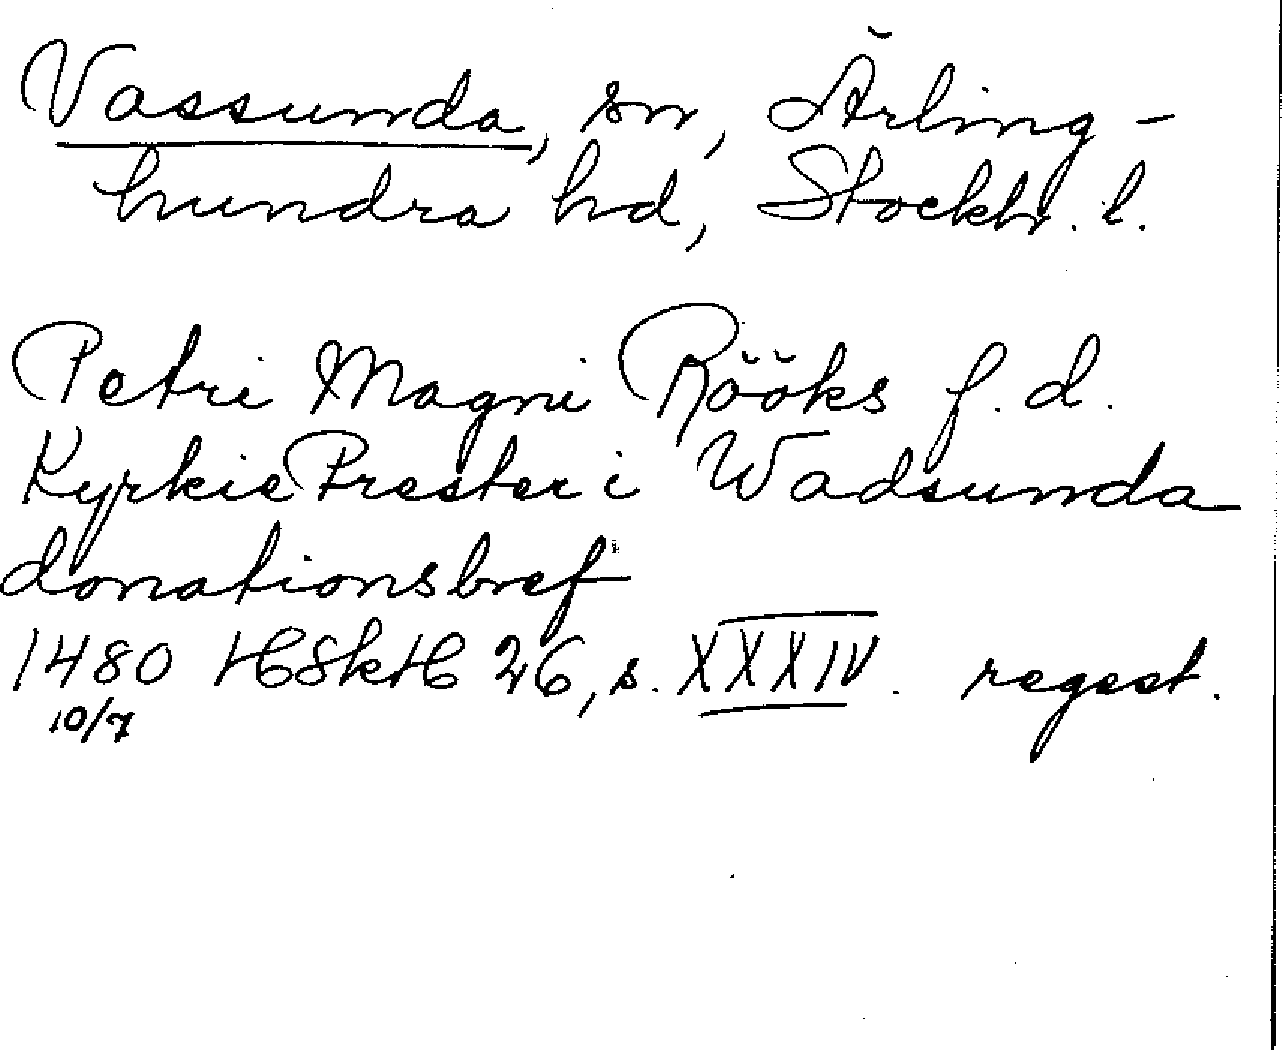 Vassunda, sn, Ärling-
hundra hd, Stockh. l.
Petri Magni Rööks f. d.
KyrkiePrester i Wadsunda
donationsbref
1480 HSkH 26, s. XXXIV. regest.
10/7